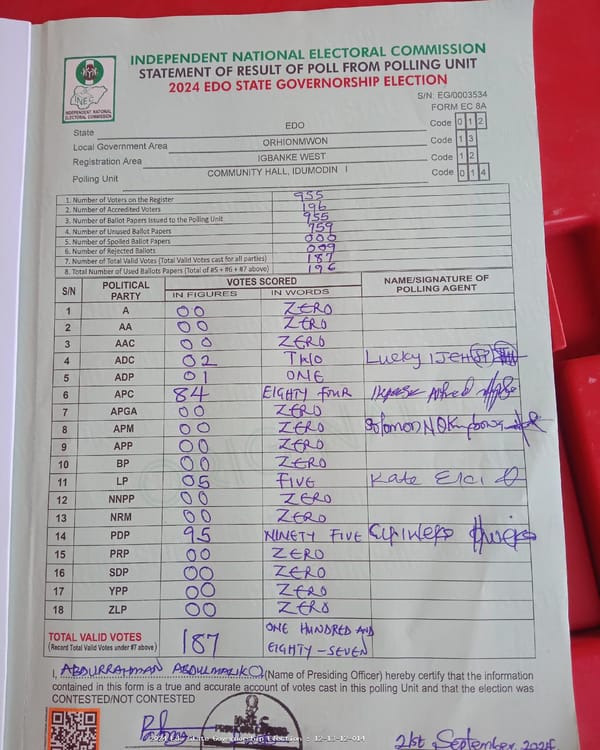 INDEPENDENT NATIONAL ELECTORAL COMMISSION
STATEMENT OF RESULT OF POLL FROM POLLING UNIT
2024 EDO STATE GOVERNORSHIP ELECTION
INEC
INDEPENDENT NATIONAL ELECTORAL COMMISSION
S/N: EG/0003534
FORM EC 8A
State EDO Code 0 1 2
Local Government Area ORHIONMWON Code 1 3
Registration Area IGBANKE WEST Code 1 2
Polling Unit COMMUNITY HALL, IDUMODIN I Code 0 1 4
1. Number of Voters on the Register 955
2. Number of Accredited Voters 196
3. Number of Ballot Papers Issued to the Polling Unit 955
4. Number of Unused Ballot Papers 759
5. Number of Spoiled Ballot Papers 000
6. Number of Rejected Ballots 009
7. Number of Total Valid Votes (Total Valid Votes cast for all parties) 187
8. Total Number of Used Ballots Papers (Total of #5 + #6 + #7 above) 196
S/N POLITICAL PARTY VOTES SCORED NAME/SIGNATURE OF POLLING AGENT
IN FIGURES IN WORDS
1 A 00 ZERO
2 AA 00 ZERO
3 AAC 00 ZERO
4 ADC 02 TWO Lucky IJEH
5 ADP 01 ONE
6 APC 84 EIGHTY FOUR
7 APGA 00 ZERO
8 APM 00 ZERO Solomon N.
9 APP 00 ZERO
10 BP 00 ZERO
11 LP 05 FIVE Kate
12 NNPP 00 ZERO
13 NRM 00 ZERO
14 PDP 95 NINETY FIVE
15 PRP 00 ZERO
16 SDP 00 ZERO
17 YPP 00 ZERO
18 ZLP 00 ZERO
TOTAL VALID VOTES 187 ONE HUNDRED AND
(Record Total Valid Votes under #7 above) EIGHTY-SEVEN
I, ABDURRAHMAN ABDULMALIK O. (Name of Presiding Officer) hereby certify that the information
contained in this form is a true and accurate account of votes cast in this polling Unit and that the election was
CONTESTED/NOT CONTESTED
2024 Edo State Governorship Election : 12-13-12-014
21st September 2024